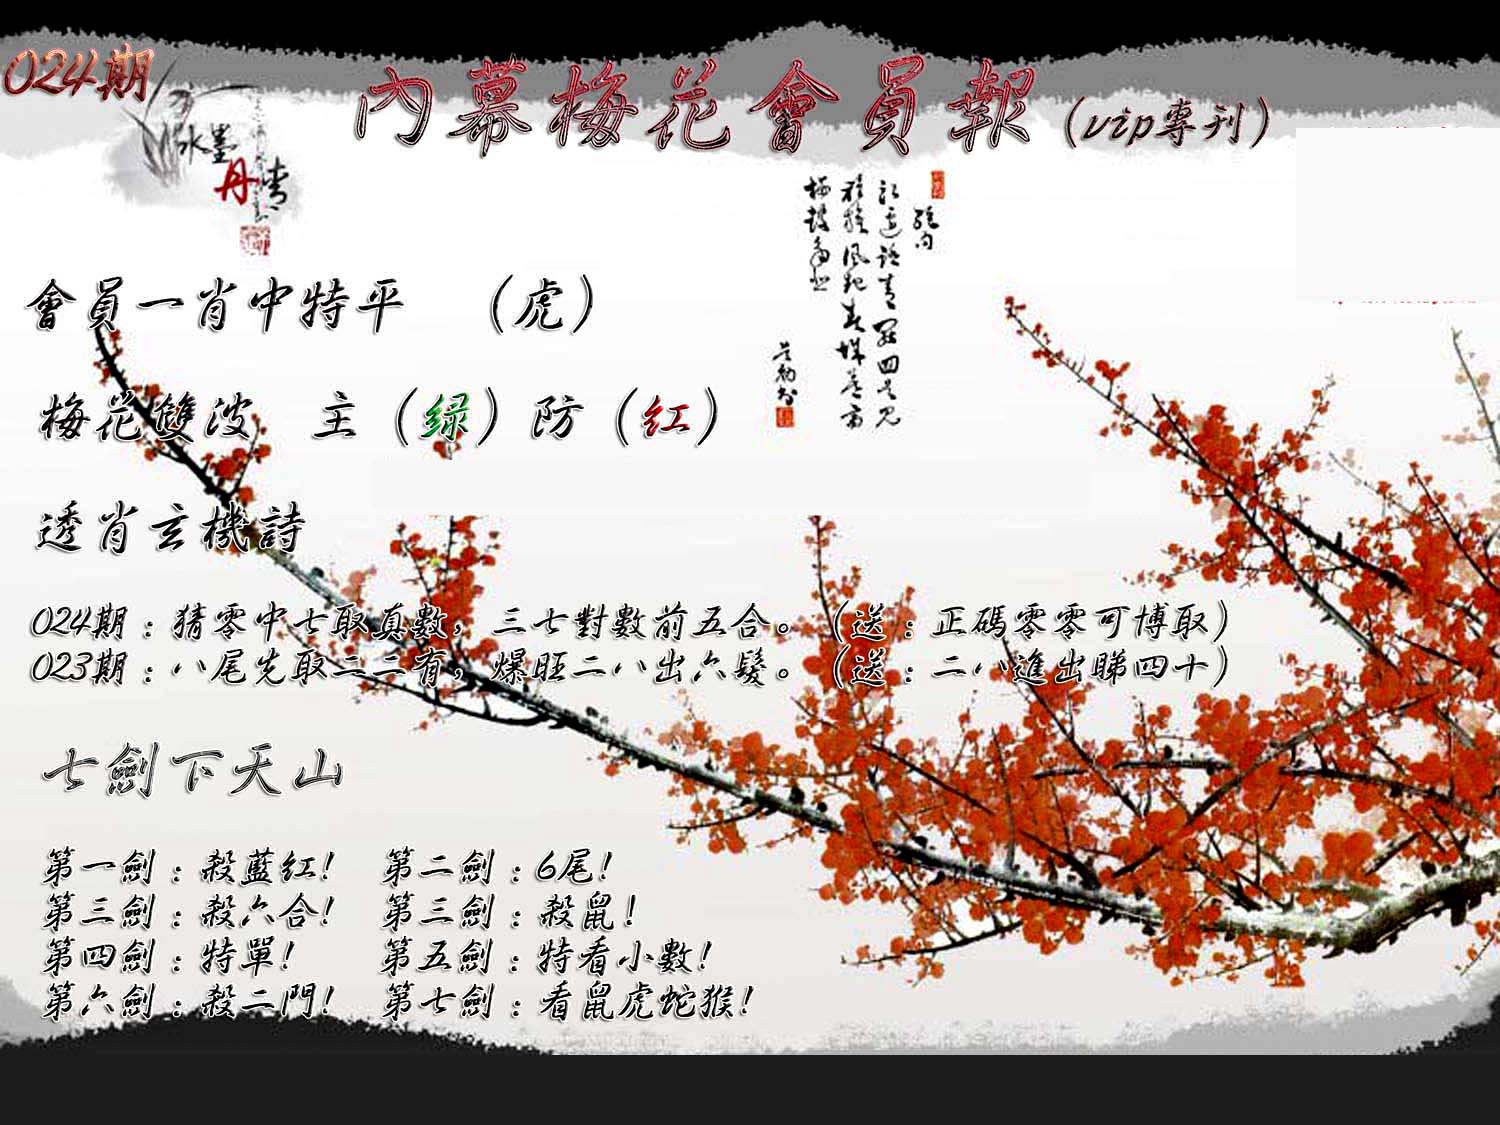 024期
內幕梅花會員報（vip專刊）
水墨
丹青
會員一肖中特平　（虎）
梅花雙波　主（绿）防（红）
透肖玄機詩
024期：猜零中七取真數，三七對數前五合。（送：正碼零零可博取）
023期：八尾先取二二有，爆旺二八出六髮。（送：二八進出睇四十）
七劍下天山
第一劍：殺藍红！　第二劍：6尾！
第三劍：殺六合！　第三劍：殺鼠！
第四劍：特單！　第五劍：特看小數！
第六劍：殺二門！　第七劍：看鼠虎蛇猴！